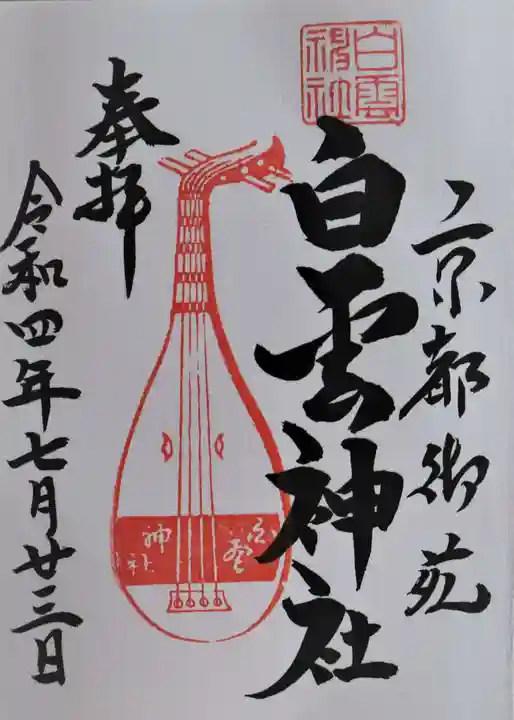 京都御苑
白雲神社
白雲神社
奉拝
白雲神社
令和四年七月廿三日